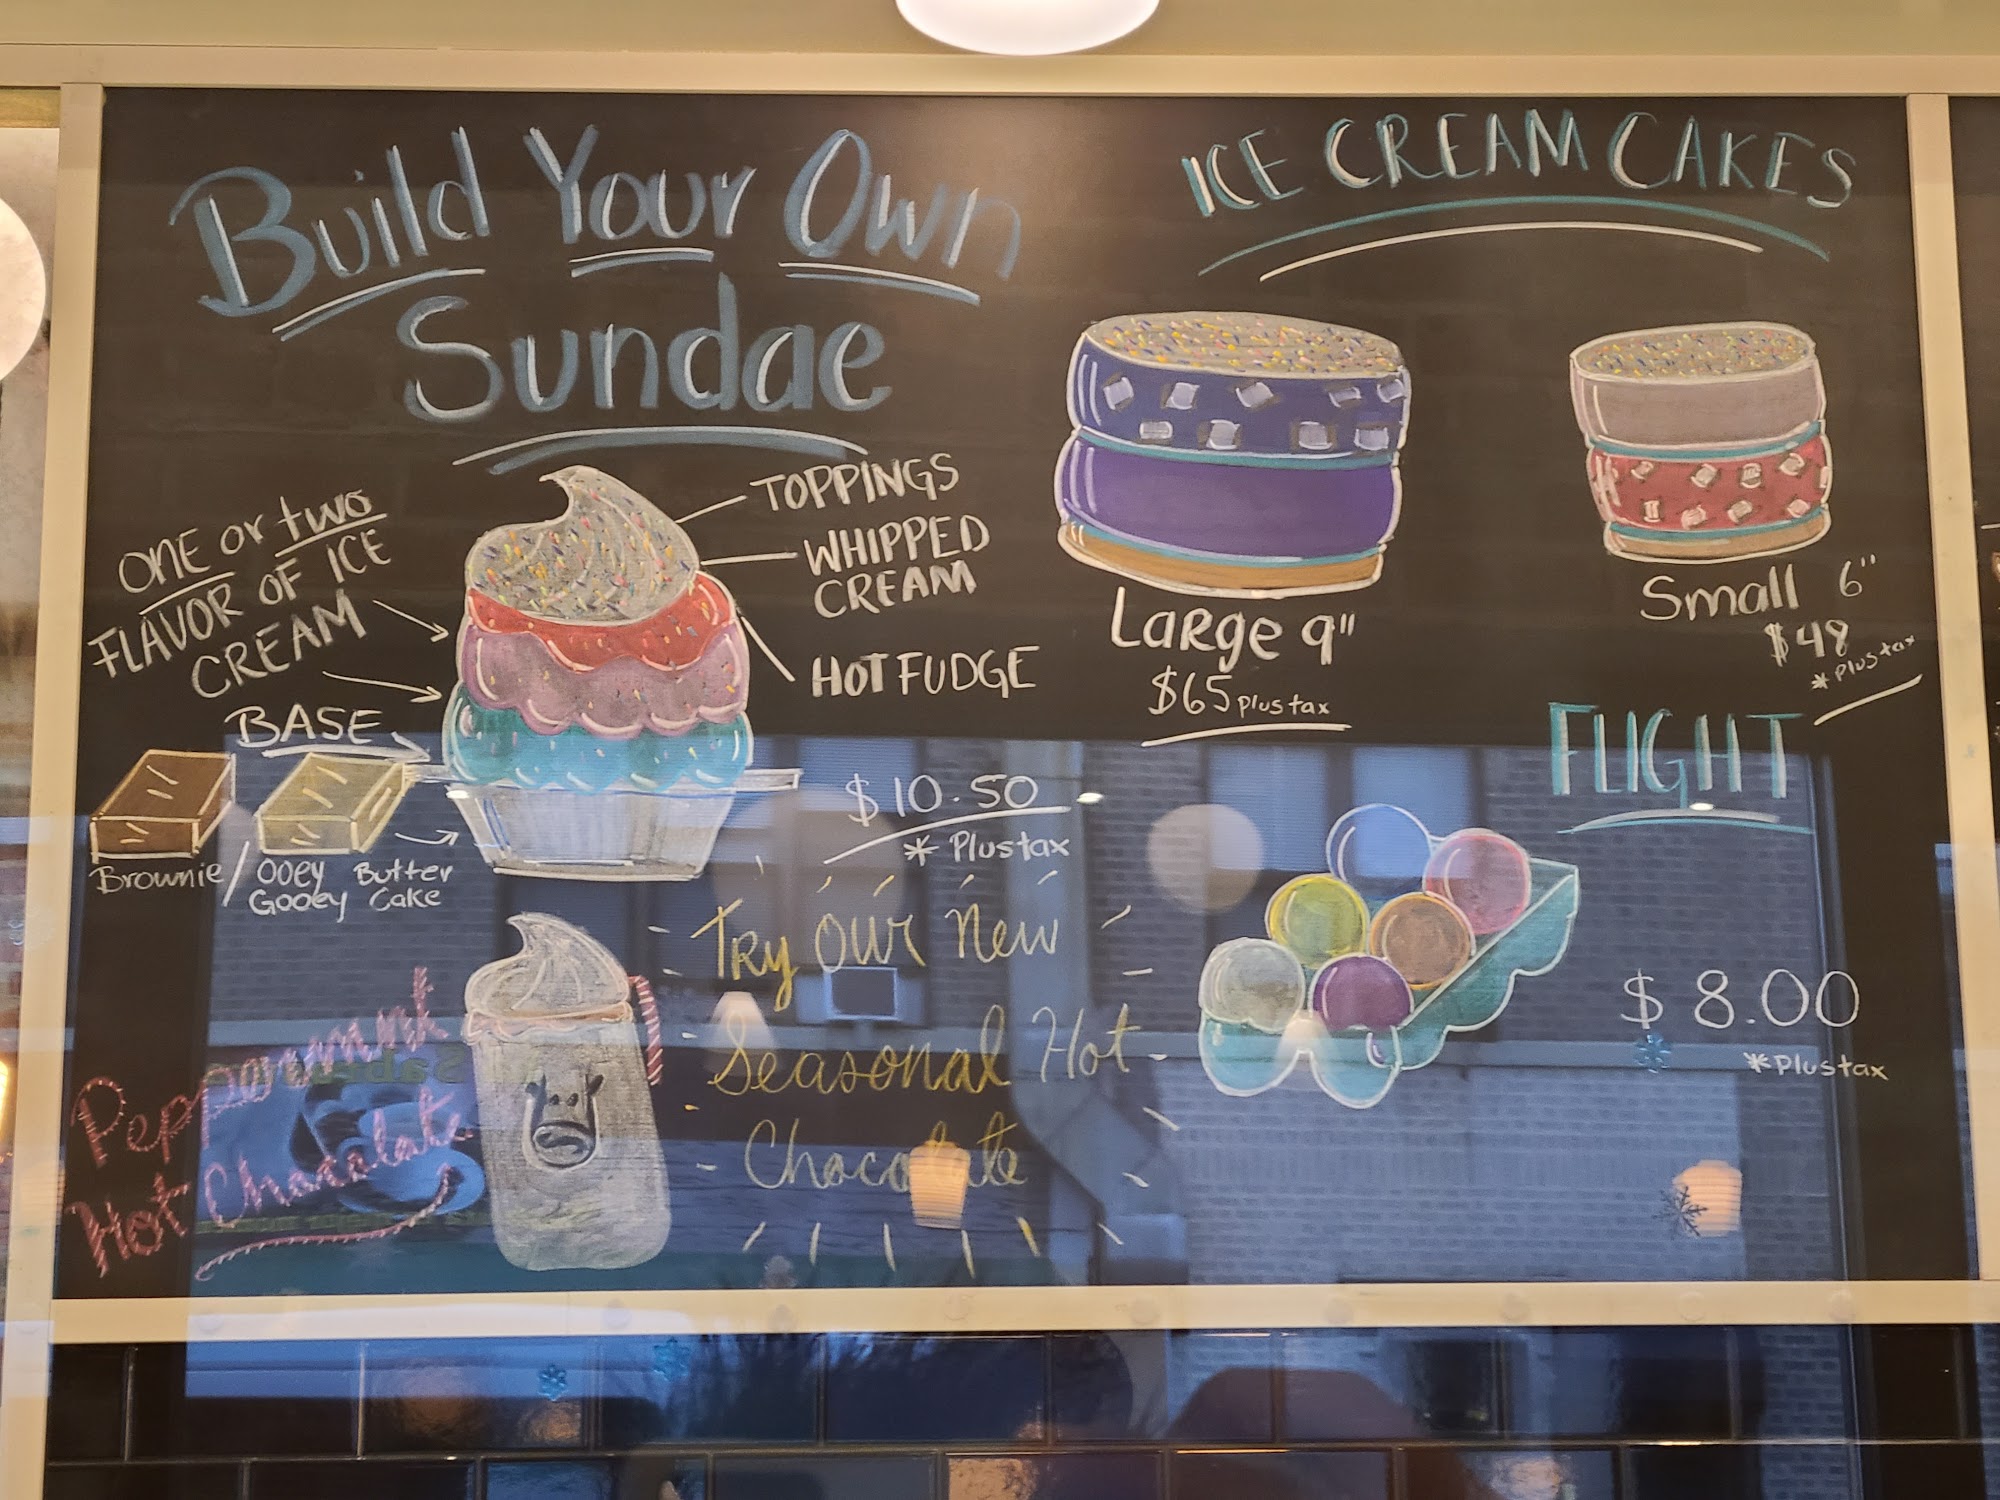 Build Your Own
Sundae
ONE or two
FLAVOR OF ICE
CREAM
BASE
Brownie / Ooey Gooey Butter Cake
TOPPINGS
WHIPPED
CREAM
HOT FUDGE
$10.50
* Plus tax
Try our new
Seasonal Hot
Chocolate
Peppermint
Hot Chocolate
ICE CREAM CAKES
Large 9"
$65 plus tax
Small 6"
$48
* plus tax
FLIGHT
$8.00
* plus tax